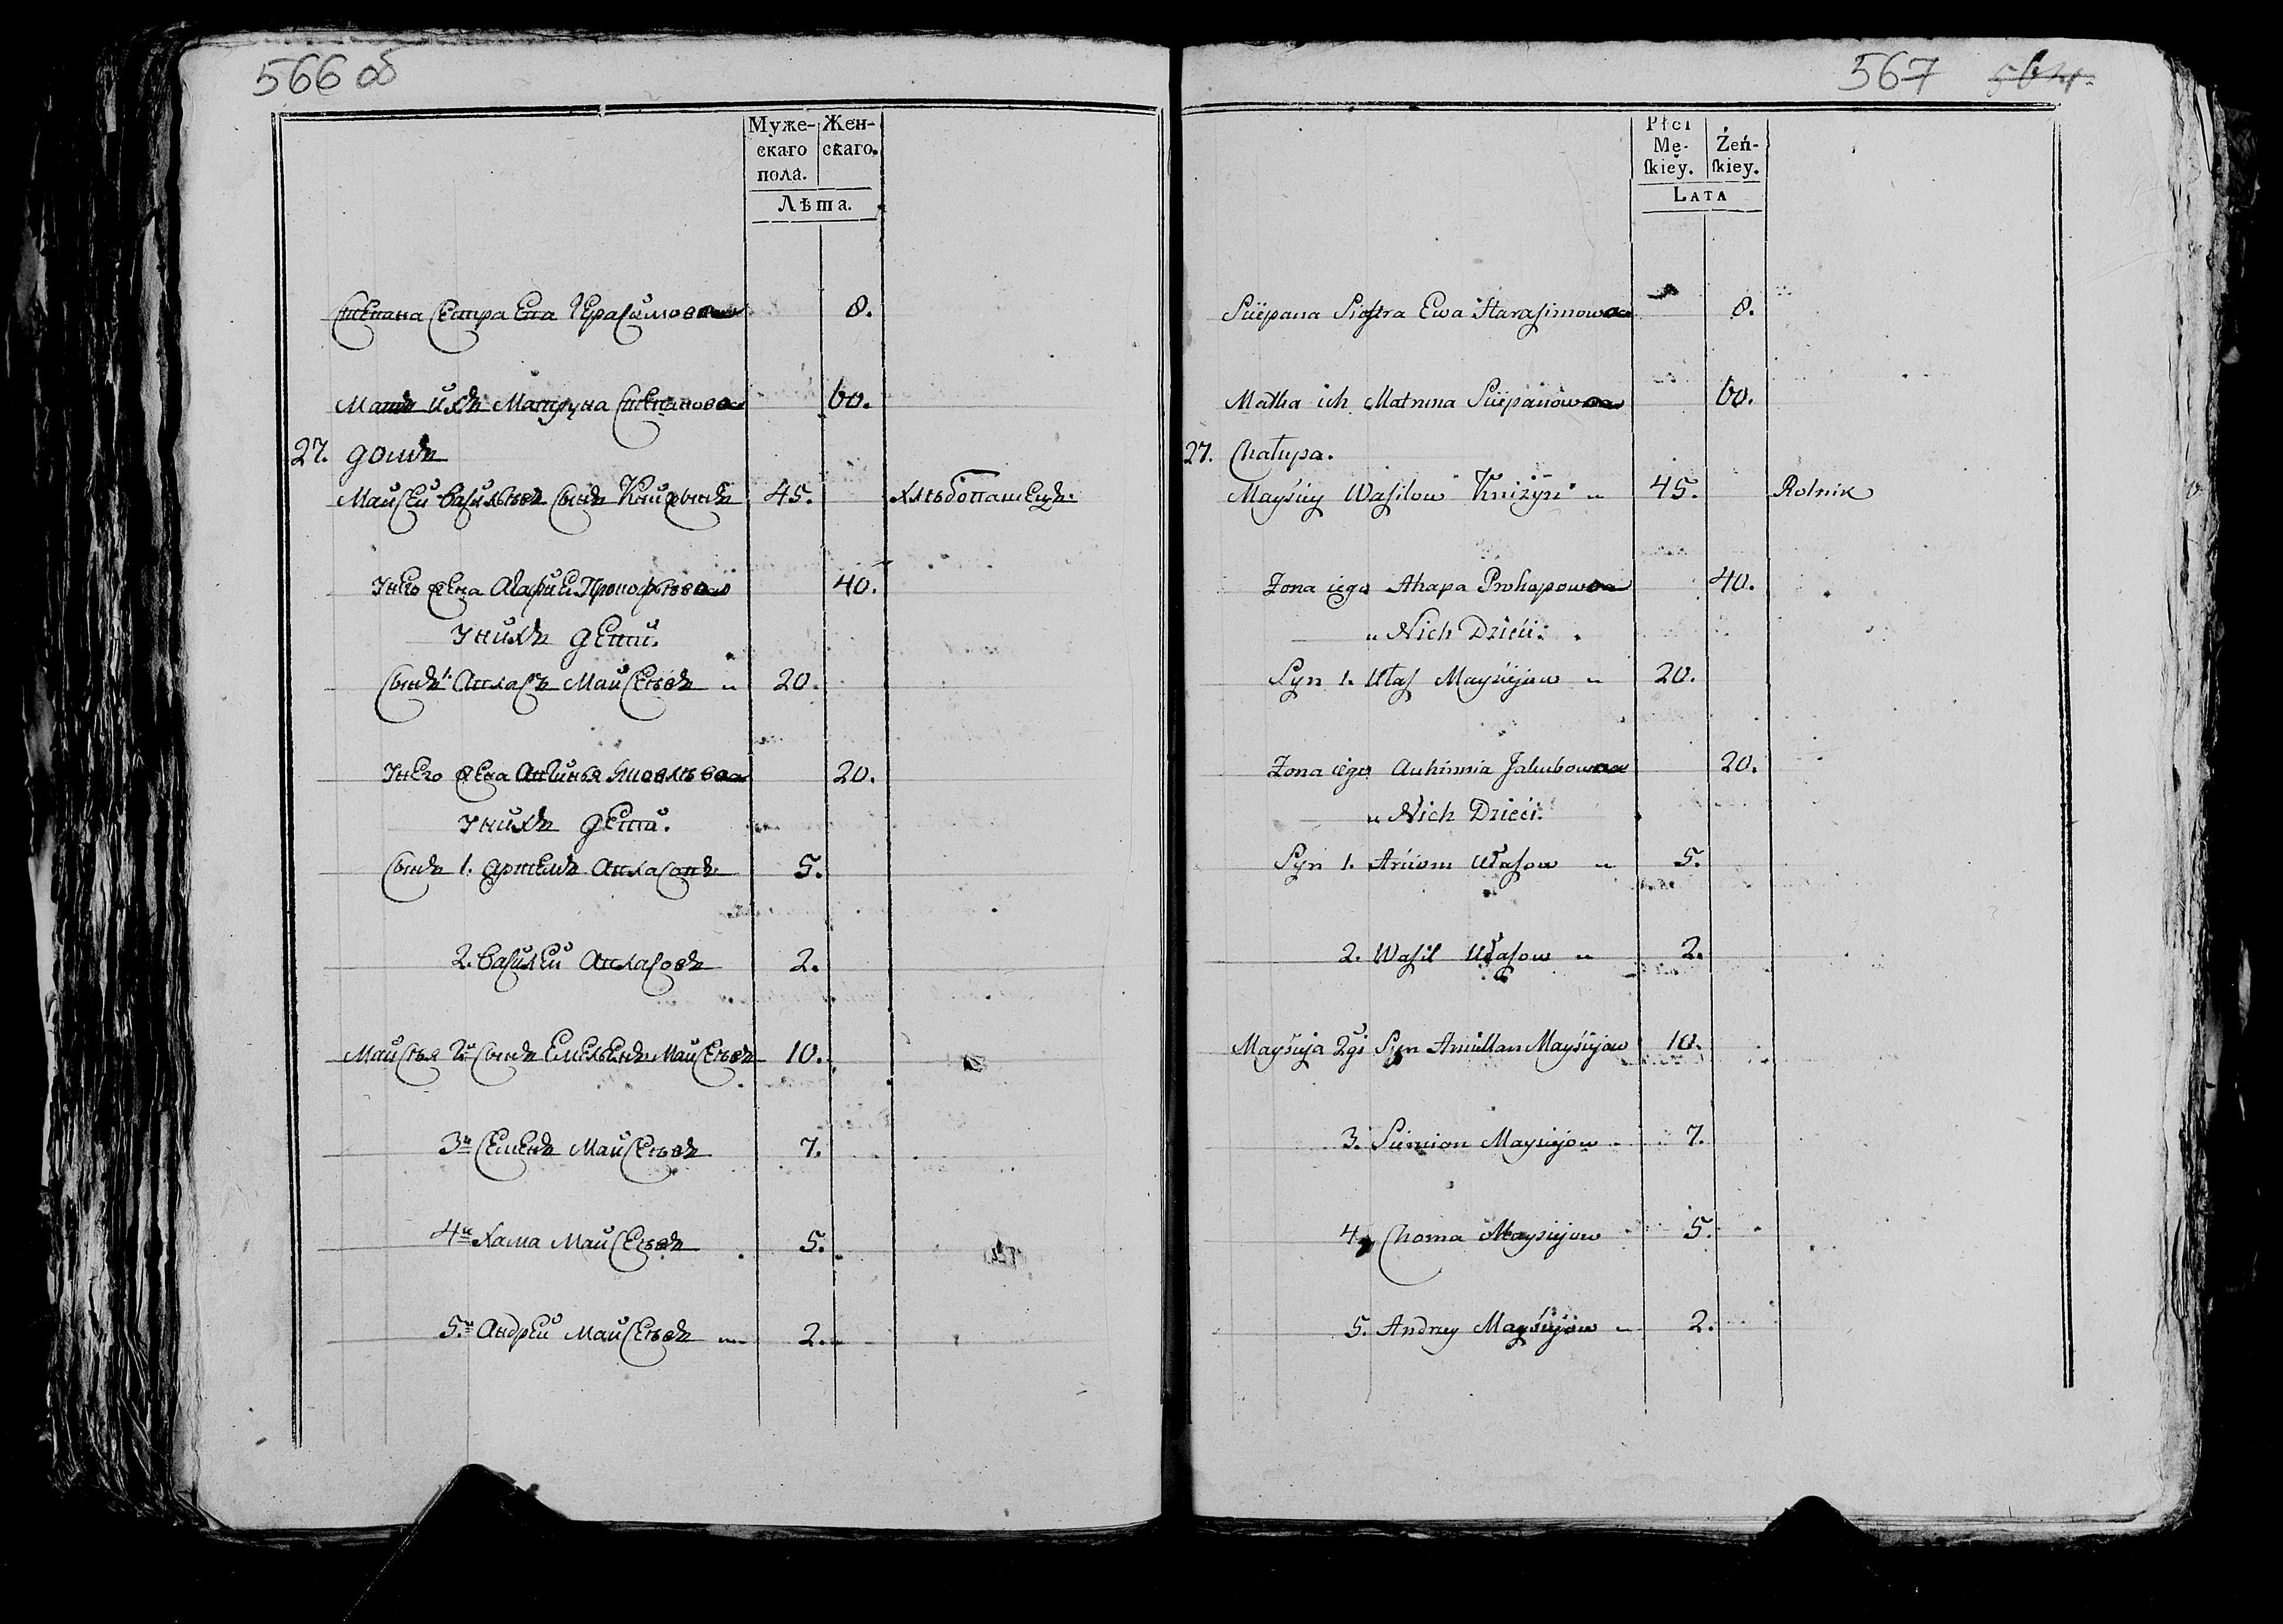 566 об
Муже-
скаго
пола.
Жен-
скаго.
Лѣта.
Степана Сестра Ева Герасимова 8.
Мать ихъ Матруна Степанова 60.
27. домъ
Майсей Васильевъ Сынъ Книжынъ 45. хлѣбопашецъ
Унего жена Агафия Прокофьева 40.
Унихъ дети.
Сынъ 1. Аѵласъ Майсеевъ „ 20.
Унего жена Яковлева 20.
Унихъ дети.
Сынъ 1. Артемъ 5.
2. Василей 2.
Майсея 2й Сынъ Емельянъ Майсеевъ 10.
3й Семенъ Майсеевъ 7.
4й Хама Майсеевъ 5.
5й Андрей Майсеевъ 2.
567
Płci
Mę-
ſkiey.
Żeń-
ſkiey.
LATA
Sciepana Siostra Ewa Harasimowa 8.
Matka ich Matruna Sciepanowa 60.
27. Chałupa.
Mayśiey Wasilow Kniżyn „ 45. Rolnik
Zona iego Ahapa Prokopowa 40.
„ Nich Dzieći.
Syn 1. Ułas Mayśiejow „ 20.
Zona iego Auhinnia Jakubowa 20.
„ Nich Dzieći.
Syn 1. Arciom Ułasow „ 5.
2. Wasil Ułasow „ 2.
Mayśieja 2gi Syn Amillan Mayśiejow 10.
3. Siemion Mayśiejow 7.
4. Choma Mayśiejow 5.
5. Andrzey Mayśiejow „ 2.